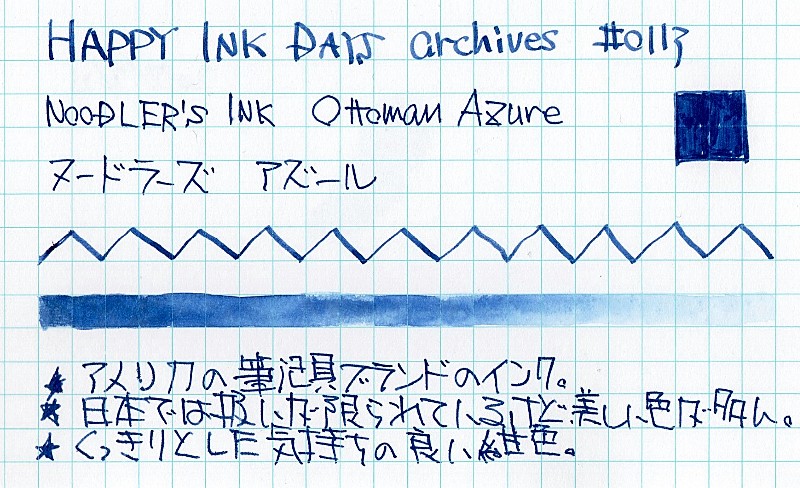 HAPPY INK DAYS archives #0113
NOODLER'S INK Ottoman Azure
ヌードラーズ アズール
★ アメリカの筆記具ブランドのインク。
★ 日本では扱いが限られているけど美しい色が多い。
★ くっきりとした気持ちの良い紺色。